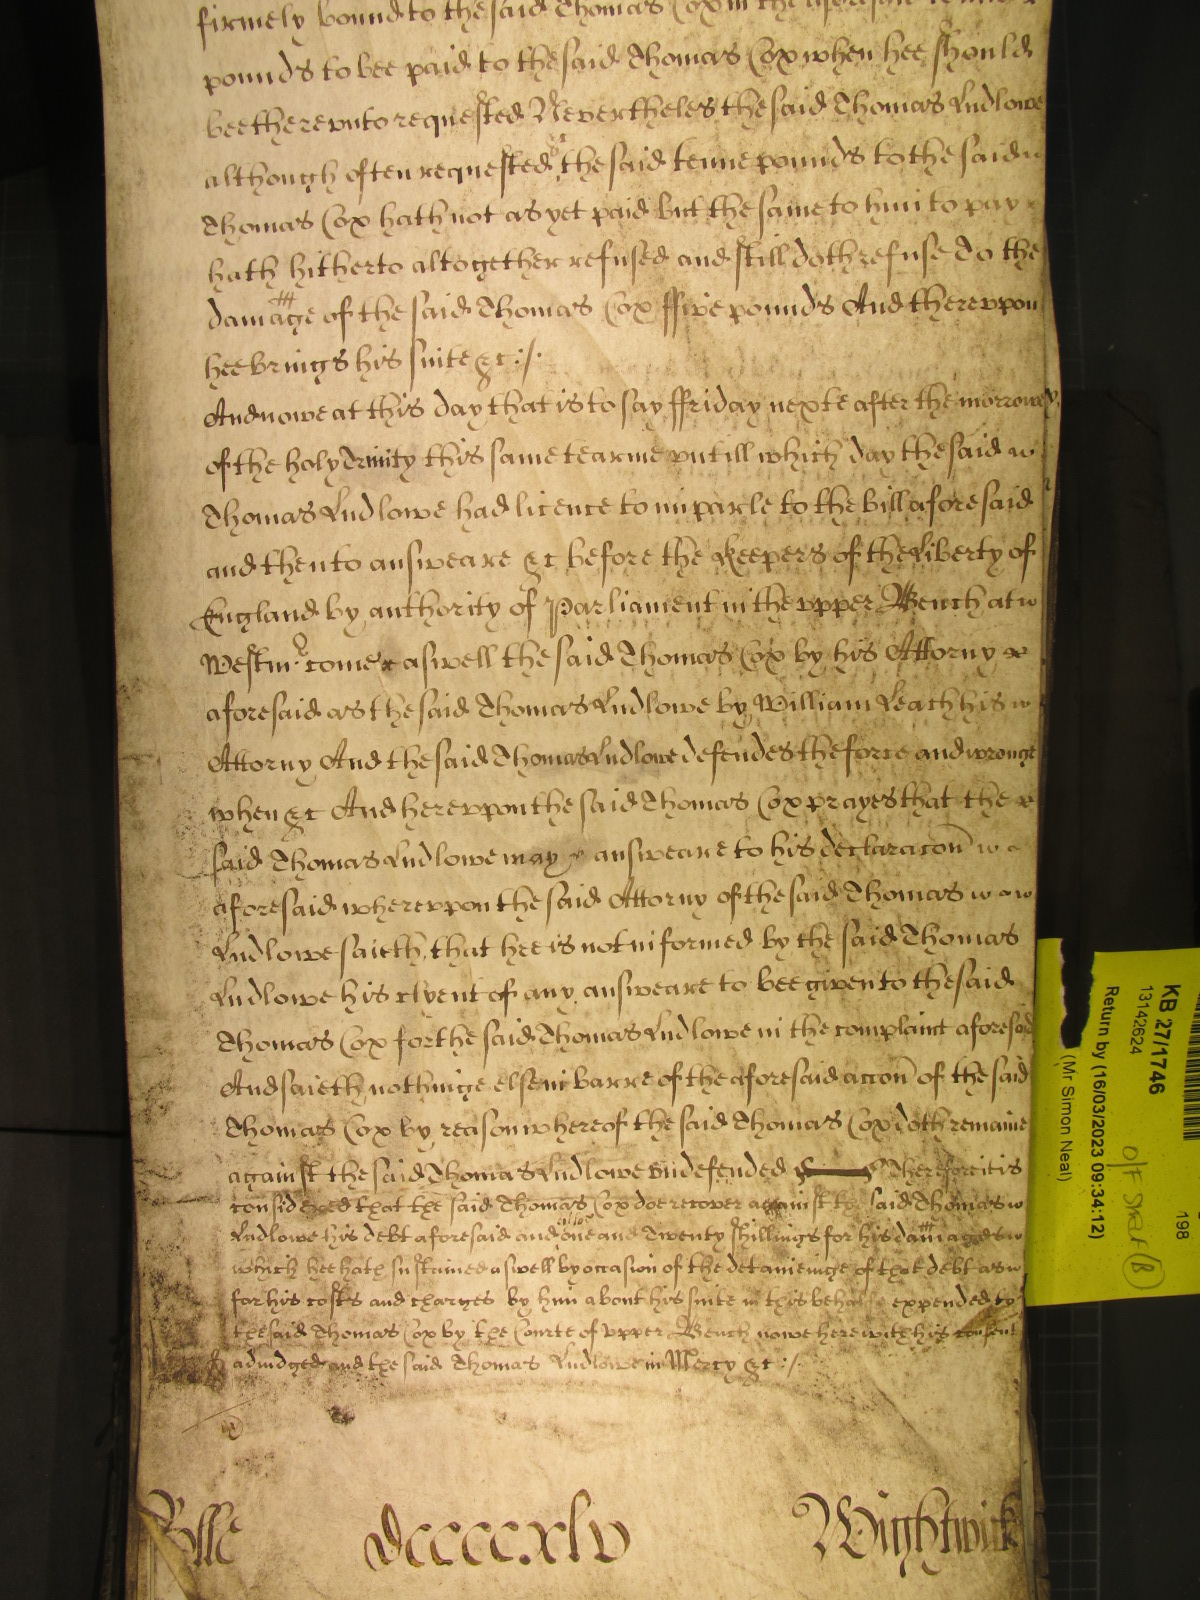 firmely bound to the said Thomas Cox in the aforesaid tenne
pounds to bee paid to the said Thomas Cox when hee should
bee therevnto requested Nevertheles the said Thomas Ludlowe
although often requested &c the said tenne pounds to the said
Thomas Cox hath not as yet paid But the same to him to pay
hath hitherto altogether refused and still doth refuse To the
damage of the said Thomas Cox ffive pounds And therevpon
hee brings his suite &c :/.
And nowe at this day that is to say ffriday nexte after the morrowe
of the holy Trinity this same tearme vntill which day the said
Thomas Ludlowe had licence to imparle to the Bill aforesaid
and then to answeare &c before the Keepers of the Liberty of
England by authority of Parliament in the vpper Bench at
Westm. come aswell the said Thomas Cox by his Attorny
aforesaid as the said Thomas Ludlowe by William Leach his
Attorny And the said Thomas Ludlowe defendes the force and wronge
when &c And herevpon the said Thomas Cox prayes that the
said Thomas Ludlowe may answeare to his declaracon
aforesaid wherevpon the said Attorny of the said Thomas
Ludlowe saieth that hee is not informed by the said Thomas
Ludlowe his clyent of any answeare to bee given to the said
Thomas Cox for the said Thomas Ludlowe in the complaint aforesaid
And saieth nothinge else in barre of the aforesaid accon of the said
Thomas Cox by reason whereof the said Thomas Cox doth remaine
against the said Thomas Ludlowe vndefended Therefore it is
considered that the said Thomas Cox doe recover against the said Thomas
Ludlowe his debt aforesaid and one and Twenty shillings for his damages
which hee hath sustained aswell by occasion of the detaieninge of that debt as
for his costs and charges by him about his suite in this behalfe expended to
the said Thomas Cox by the Courte of vpper Bench nowe here with his consent
adiudged and the said Thomas Ludlowe in Mercy &c :/.
Rolle dccccxlv Wightwick
KB 27/1746
13142624
Return by (16/03/2023 09:34:12)
(Mr Simon Neal)
198